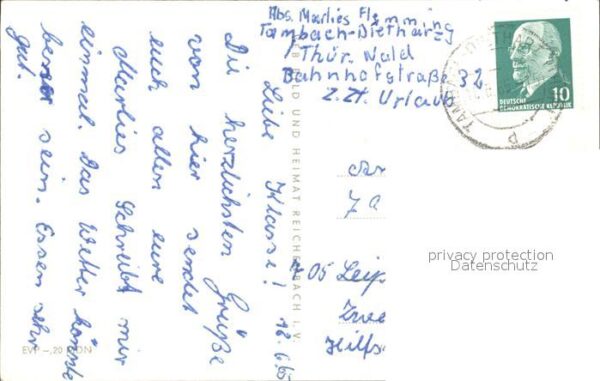 Abs. Marlies Flemming
Tambach-Dietharz
/ Thür. Wald
Bahnhofstraße 32
z. Zt. Urlaub
DEUTSCHE
DEMOKRATISCHE REPUBLIK 10
Liebe Klasse! 12.6.65
Die herzlichsten Grüße
von hier sendet
euch allen eure
Marlies. Schreibt mir
einmal. Das Wetter könnte
besser sein. Essen sehr
gut.
BILD UND HEIMAT REICHENBACH I. V.
An
7a
705 Leip
Zwe
Hilfs
privacy protection
Datenschutz
EVP -,20 MDN